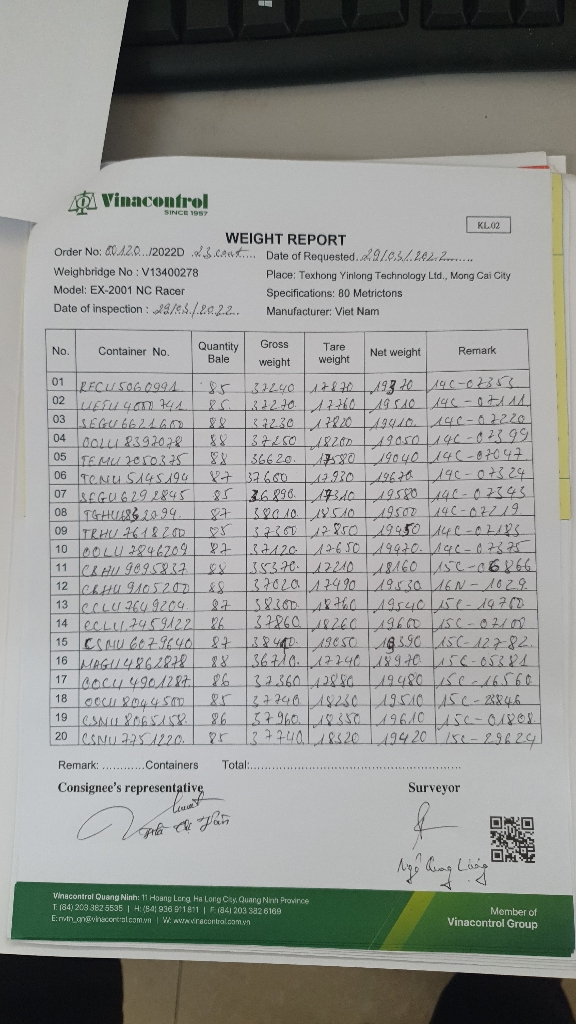 Vinacontrol
SINCE 1957
KL.02
WEIGHT REPORT
Order No: 00120.../2022D .23 cont.... Date of Requested..29/03/2022.......
Weighbridge No : V13400278 Place: Texhong Yinlong Technology Ltd., Mong Cai City
Model: EX-2001 NC Racer Specifications: 80 Metrictons
Date of inspection : 29/03/2022.. Manufacturer: Viet Nam
No. Container No. Quantity Bale Gross weight Tare weight Net weight Remark
01 RFCU5060991 85 37240 17870 19370 14C-07353
02 UESU4000741 85 37270 17760 19510 14C-07111
03 SEGU6621600 88 37230 17820 19410 14C-07220
04 OOLU8397078 88 37250 18200 19050 14C-07399
05 TEMU7050375 88 36620 17580 19040 14C-07047
06 TCNU5145194 87 37600 17930 19670 14C-07324
07 SEGU6292845 85 36890 17310 19580 14C-07343
08 87 38010 18510 19500 14C-07219
09 TRHU7618200 85 37300 17850 19450 14C-07183
10 OOLU7846209 87 37120 17650 19470 14C-07375
11 CBHU9095837 88 35370 17210 18160 15C-06866
12 CBHU9105200 88 37020 17490 19530 16N-1029
13 CCLU7649204 87 38300 18760 19540 15C-14700
14 CCLU7459122 86 37860 18260 19600 15C-07108
15 CSNU6079640 87 38440 19050 19390 15C-12782
16 MAGU4862878 88 36710 17740 18970 15C-05381
17 OOCU4901287 86 37360 17880 19480 15C-16560
18 OOCU8044500 85 37740 18230 19510 15C-23846
19 CSNU8065158 86 37960 18350 19610 15C-01808
20 CSNU7751220 85 37740 18320 19420 15C-29624
Remark: ............Containers Total:......................................................
Consignee's representative Surveyor
Ngô Quang Lượng
Vinacontrol Quang Ninh: 11 Hoang Long, Ha Long City, Quang Ninh Province
T: (84) 203 382 5535 | H: (84) 936 911 811 | F: (84) 203 382 6169
E: nvtn_qn@vinacontrol.com.vn | W: www.vinacontrol.com.vn
Member of
Vinacontrol Group